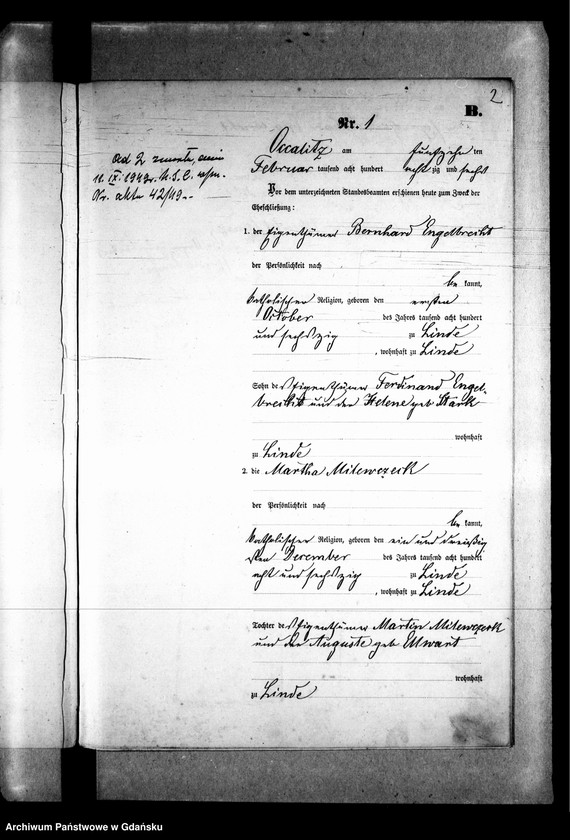 2
B.
Nr. 1
Occalitz am fünfzehn ten
Februar tausend acht hundert acht zig und sechs
Vor dem unterzeichneten Standesbeamten erschienen heute zum Zweck der
Eheschließung:
1. der Eigenthümer Bernhard Engelbrecht
der Persönlichkeit nach
be kannt,
katholischer Religion, geboren den ersten
October des Jahres tausend acht hundert
und sechszig zu Linde
, wohnhaft zu Linde
Sohn des Eigenthümer Ferdinand Engel-
brecht und der Helene geb Stark
wohnhaft
zu Linde
2. die Martha Milewczeck
der Persönlichkeit nach
be kannt,
katholischer Religion, geboren den ein und dreißig
sten December des Jahres tausend acht hundert
acht und sechszig zu Linde
, wohnhaft zu Linde
Tochter des Eigenthümer Martin Milewczeck
und der Auguste geb Ellwart
wohnhaft
zu Linde
ad 2 zmarła
11. IX. 1949r. U.S.C.
Nr. aktu 42/49.-
Archiwum Państwowe w Gdańsku